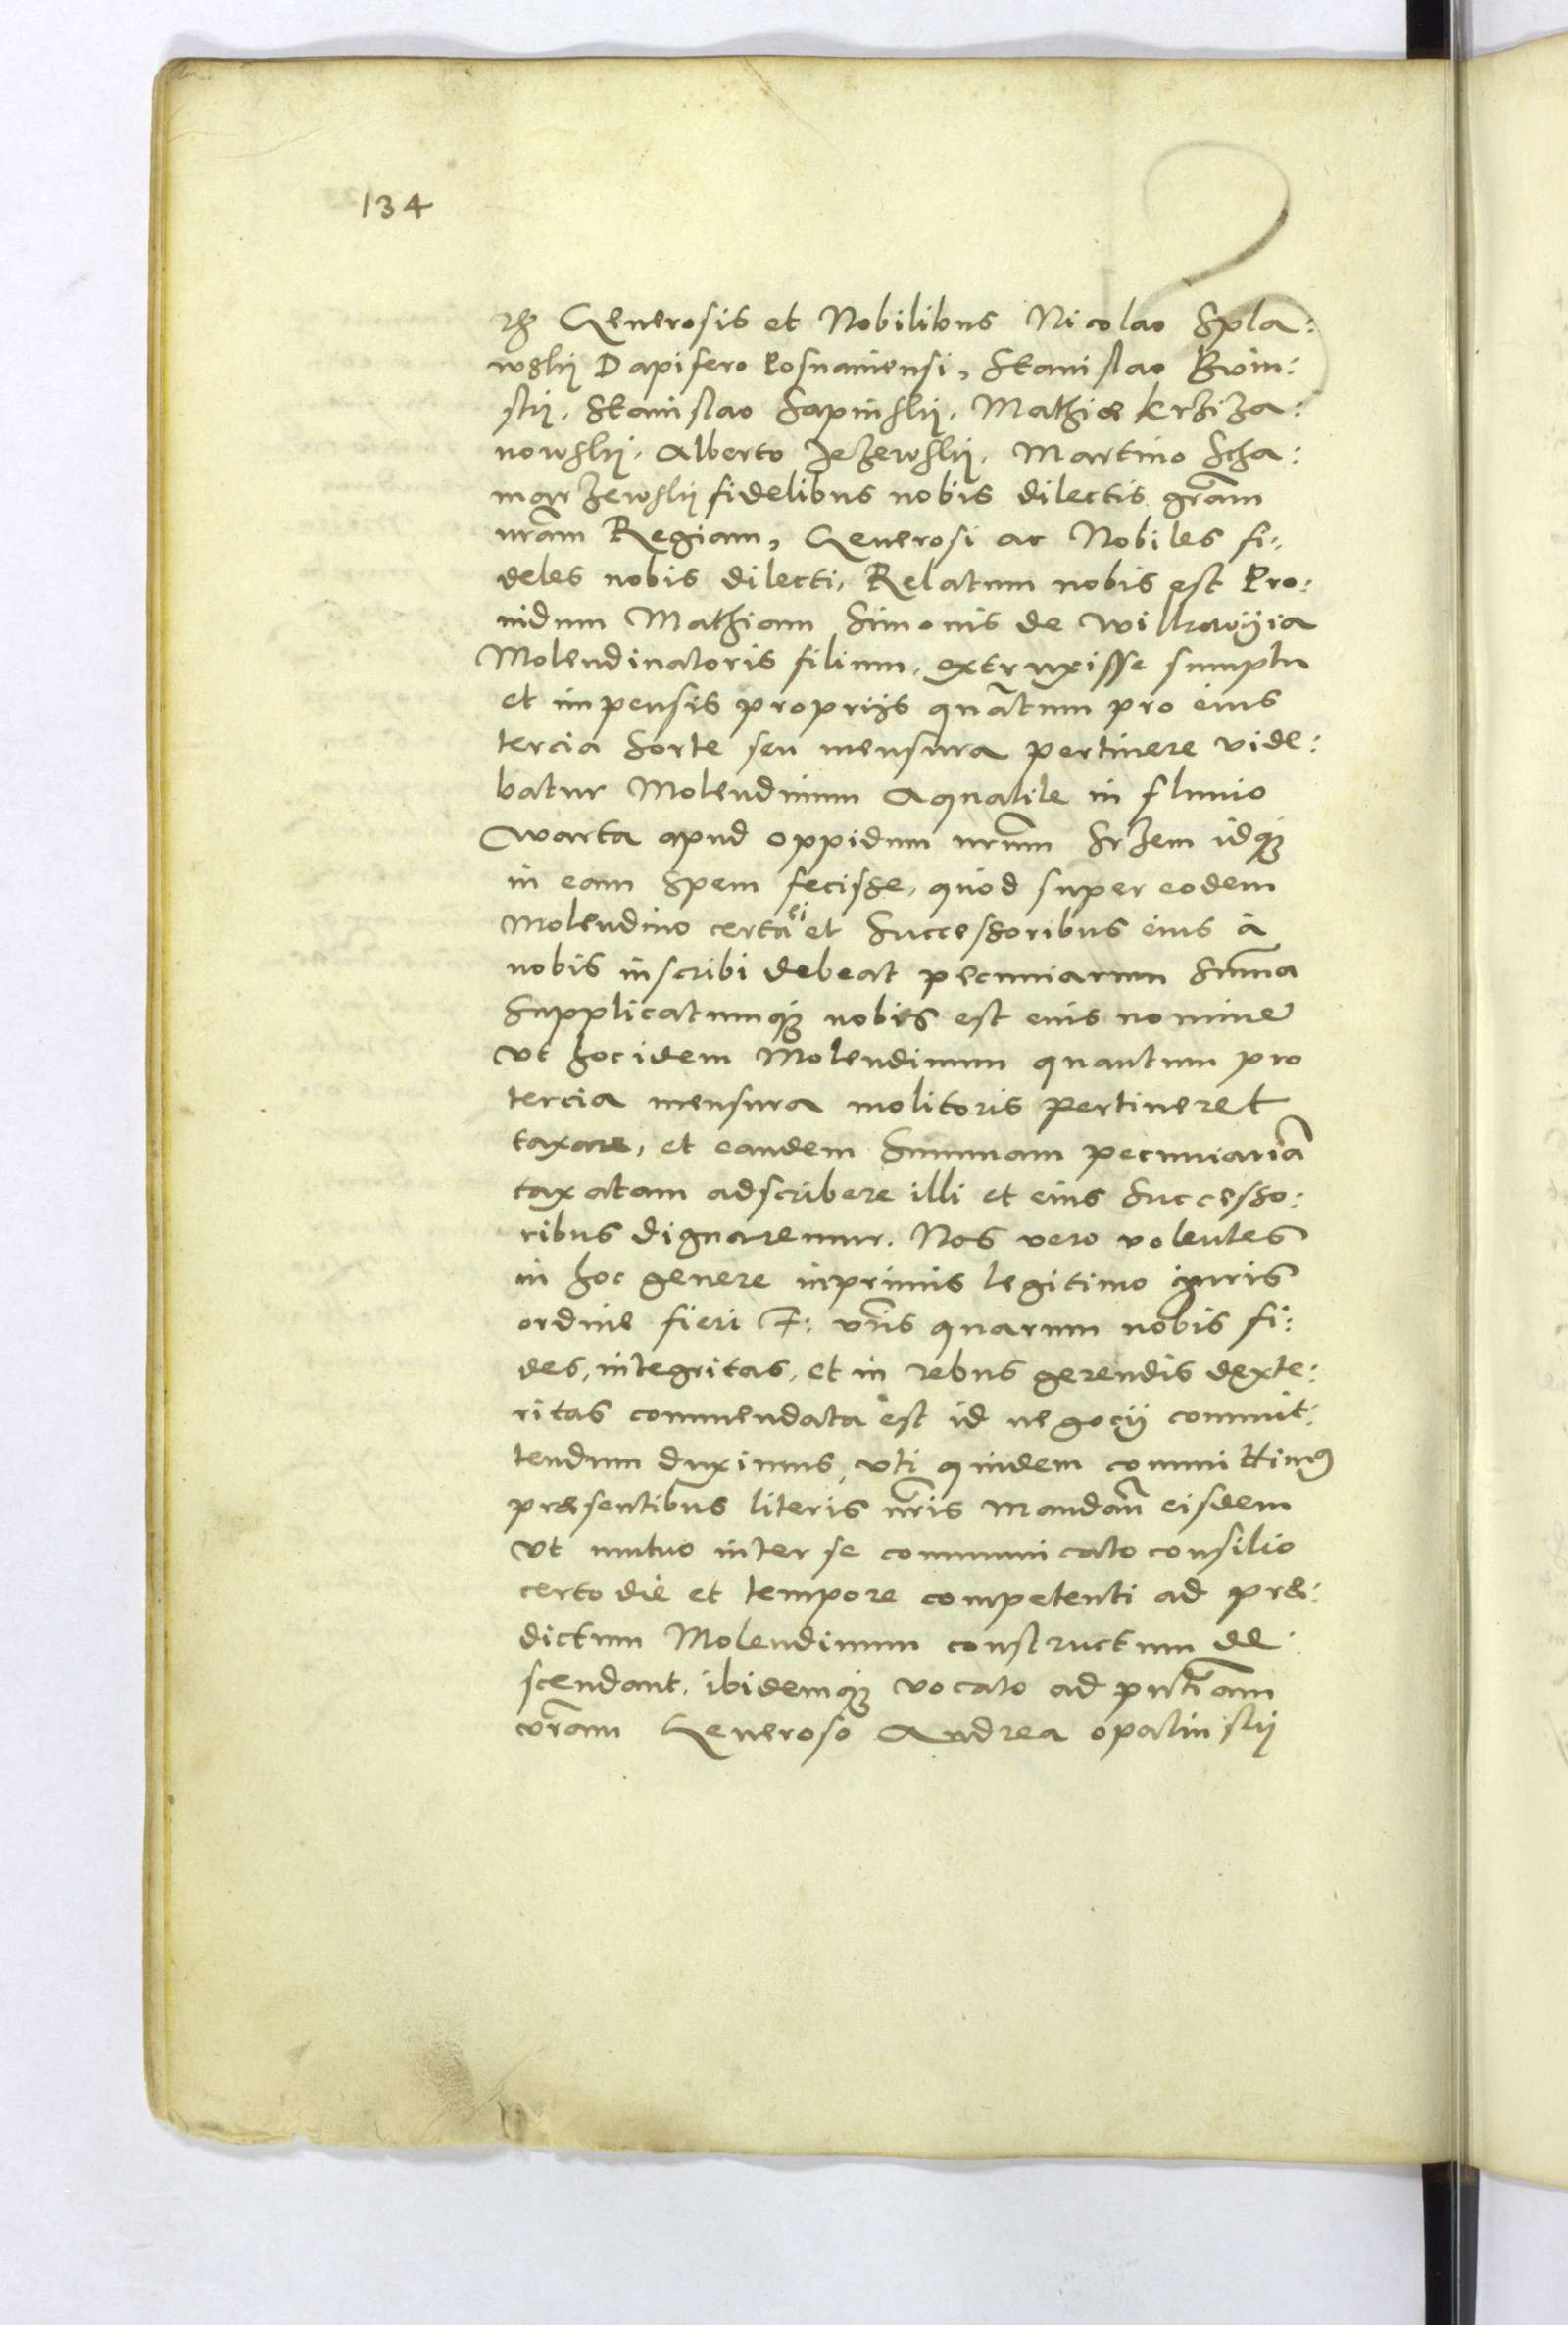 134
Generosis et Nobilibus Nicolao Spla:
wskij Dapifero Posnaniensi, Stanislao Bnin:
skij. Stanislao Sapinskij. Mathiæ Krziza:
nowskij. Alberto Jezewskij. Martino Scha:
marzewskij fidelibus nobis dilectis gr̃am
nr̃am Regiam, Generosi ac Nobiles fi:
deles nobis dilecti, Relatum nobis est Pro:
uidum Mathiam Simonis de
Molendinatoris filium, extruxisse sumptu
et impensis proprijs quãtum pro eius
tercia sorte seu mensura pertinere vide:
batur Molendinum Aquatile in fluuio
Warta apud oppidum nr̃um Srzem idq3
in eam spem fecisse, quod super eodem
Molendino certa ei et Successoribus eius à
nobis inscribi debeat pecuniarum Sum̃a
Supplicatumq3 nobis est eius nomine
vt hoc idem Molendinum quantum pro
tercia mensura molitoris pertineret
taxare, et eandem Summam pecuniariã
taxatam adscribere illi et eius Successo:
ribus dignaremur. Nos vero volentes
in hoc genere inprimis legitimo iuris
ordine fieri F: vr̃is quarum nobis fi:
des, integritas, et in rebus gerendis dexte:
ritas commendata est id negocij commit:
tendum duximus, vti quidem committimus
præsentibus literis nr̃is Mandan̄ eisdem
vt mutuo inter se communicato consilio
certo die et tempore competenti ad præ:
dictum Molendinum constructum de:
scendant, ibidemq3 vocato ad pn̄tiam
vr̃am Generoso Andrea Opalinskij